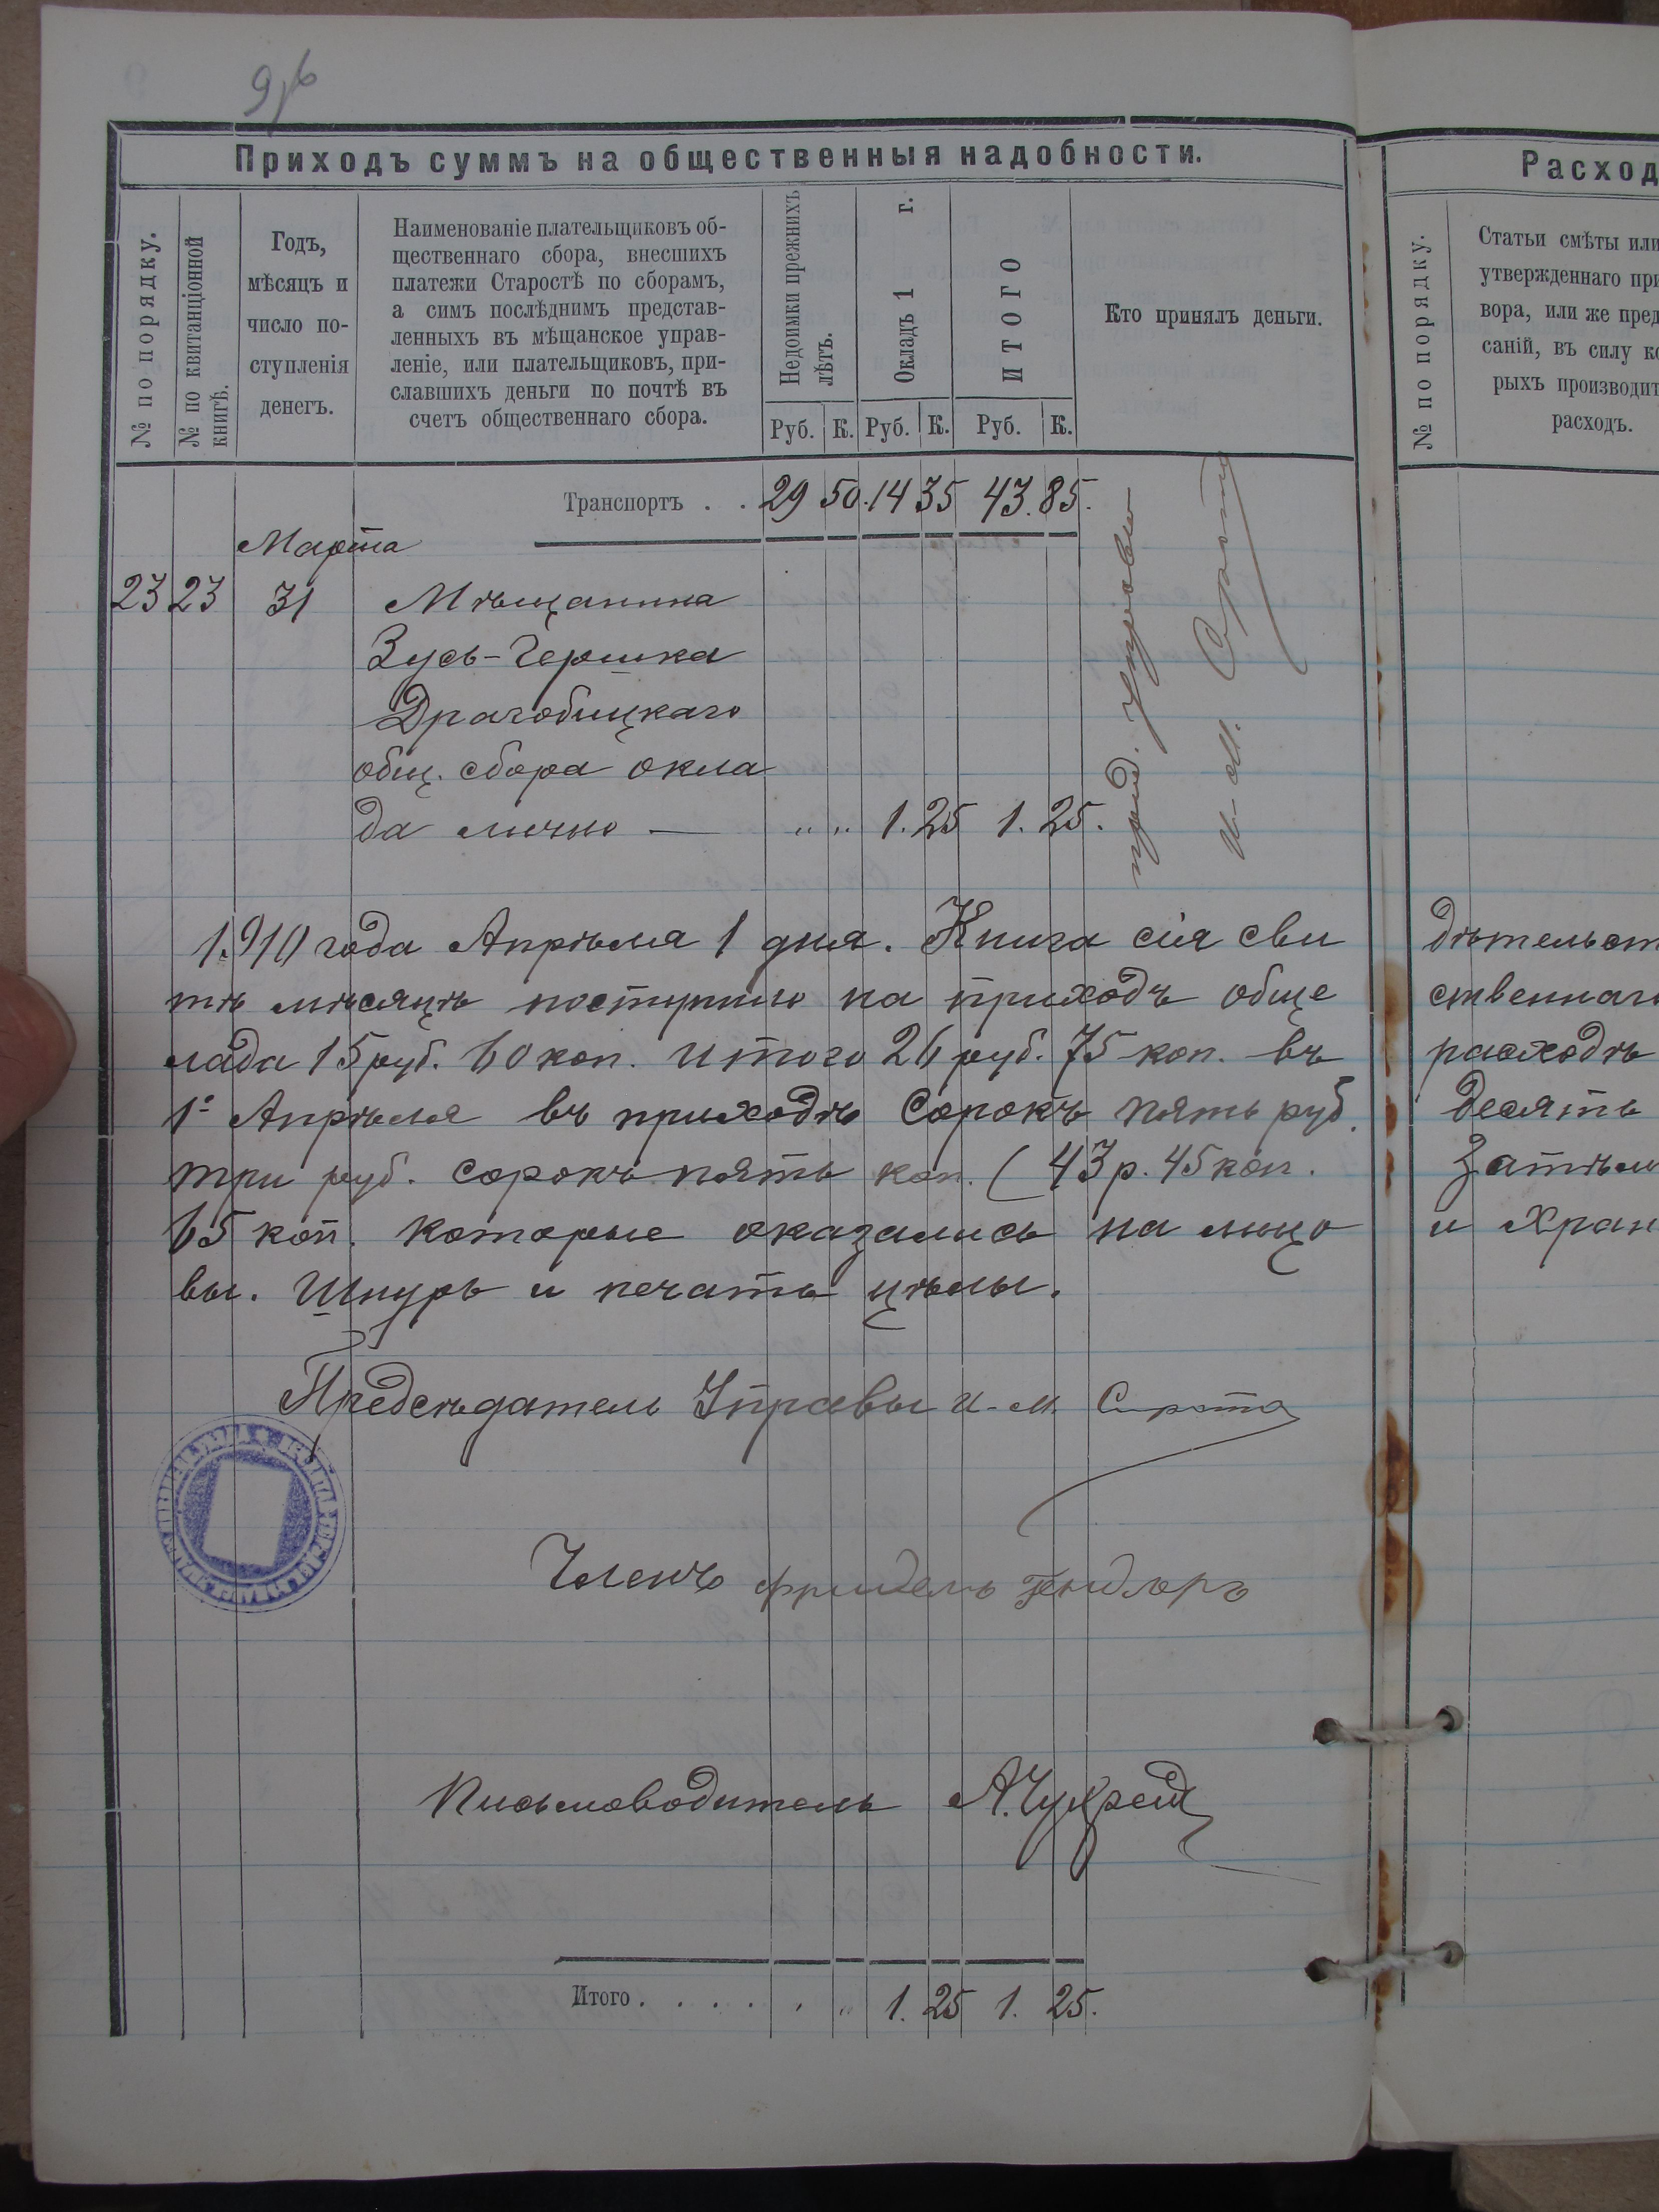 Приходъ суммъ на общественныя надобности.
№ по порядку.
№ по квитанціонной
книгѣ.
Годъ,
мѣсяцъ и
число по-
ступленія
денегъ.
Наименованіе плательщиковъ об-
щественнаго сбора, внесшихъ
платежи Старостѣ по сборамъ,
а симъ послѣднимъ представ-
ленныхъ въ мѣщанское управ-
леніе, или плательщиковъ, при-
славшихъ деньги по почтѣ въ
счетъ общественнаго сбора.
Недоимки прежнихъ
лѣтъ.
Окладъ 1 г.
ИТОГО
Кто принялъ деньги.
Руб. К. Руб. К. Руб. К.
Транспортъ . . 29 50. 14 35 43. 85.
Марта
23 23 31 Мѣщанина
Зусь-Гершка
Драгобицкаго
общ. сбора окла
да лично — " " 1. 25 1. 25.
пред. Управы
И. М. Сирота
1910 года Апрѣля 1 дня. Книга сія сви
тѣ мѣсяцѣ поступило на приходъ обще
лада 15 руб. 60 коп. итого 26 руб. 75 коп. въ
1º Апрѣля въ приходѣ Сорокъ пять руб.
три руб. сорокъ пять коп. (43 р. 45 коп.
65 коп. которые оказались на лицо
вы. Шнуръ и печать цѣлы.
Предсѣдатель Управы И. М. Сирота
Членъ Фридель Гендлеръ
Письмоводитель
Итого . . . . . " 1. 25 1. 25.
Расход
№ по порядку.
Статьи смѣты или
утвержденнаго при
вора, или же пред
саній, въ силу ко
рыхъ производит
расходъ.
дѣтельст
ственнаго
расходѣ
десять
Затѣм
и Хран